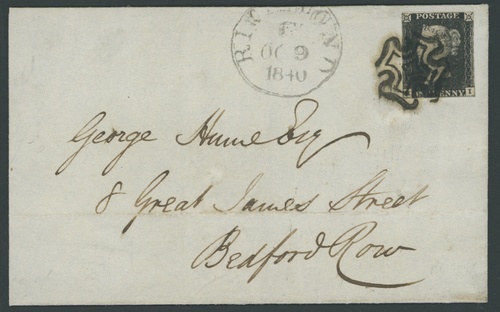 RICHMOND
OC 9
1840
POSTAGE
ONE PENNY
I
George Hume Esq
8 Great James Street
Bedford Row